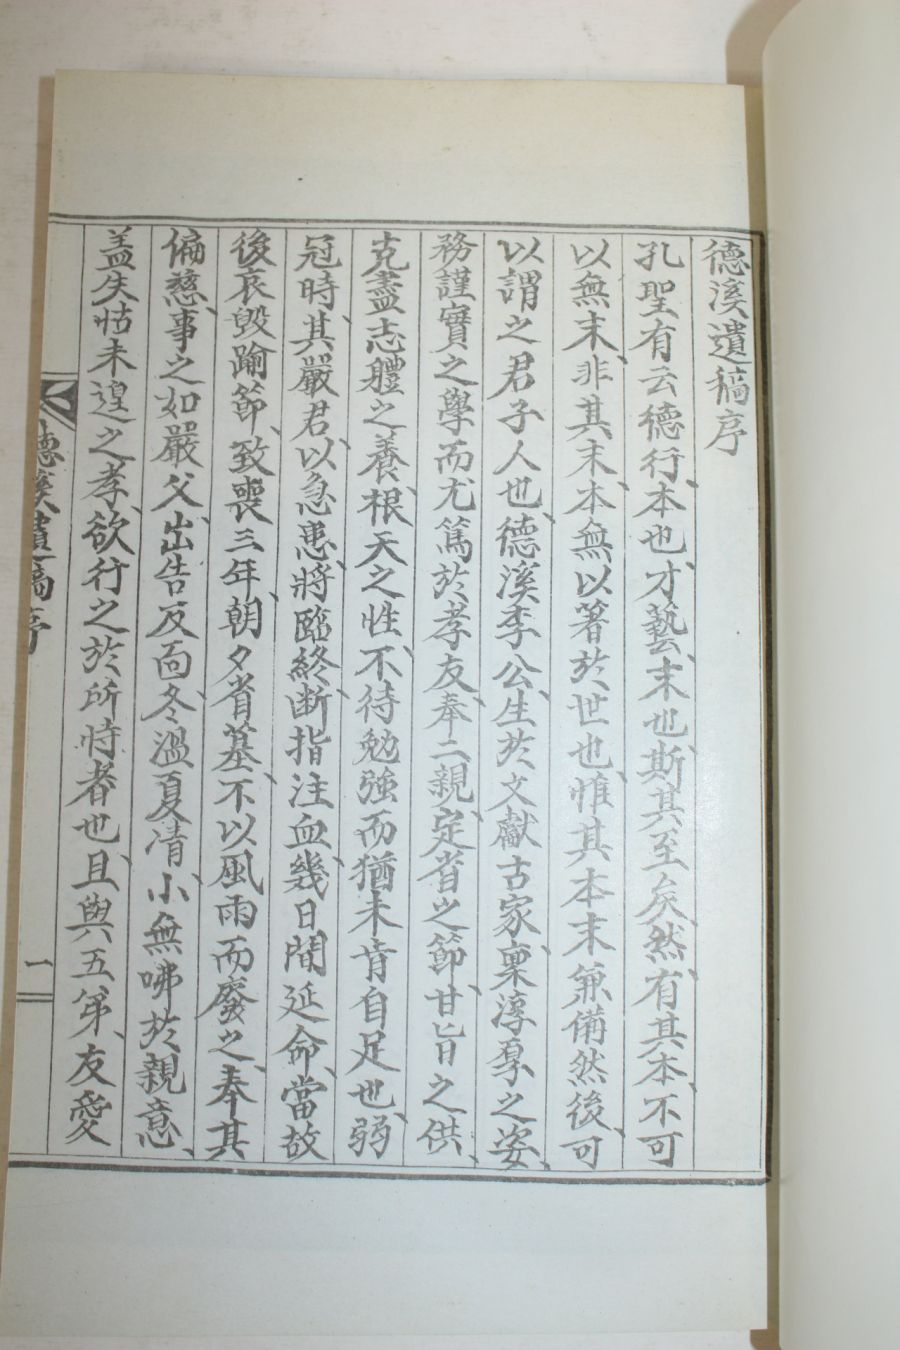 德溪遺稿序
孔聖有云德行、本也、才藝、末也、斯其至矣、然、有其本、不可
以無末、非其末、本無以著於世也、惟其本末兼備然後、可
以謂之君子人也、德溪李公、生於文獻古家、稟淳厚之姿、
務謹實之學而尤篤於孝友、奉二親、定省之節、甘旨之供、
克盡志體之養、根天之性、不待勉強而猶未肯自足也、弱
冠時、其嚴君、以急患、將臨終、断指注血、幾日間延命、當故
後哀毁踰節、致喪三年、朝夕省墓、不以風雨而廢之、奉其
偏慈、事之如嚴父、出告反面、冬溫夏凊、小無咈於親意、
盖失怙未遑之孝、欲行之於所恃者也、且與五弟、友愛
德溪遺稿序
一